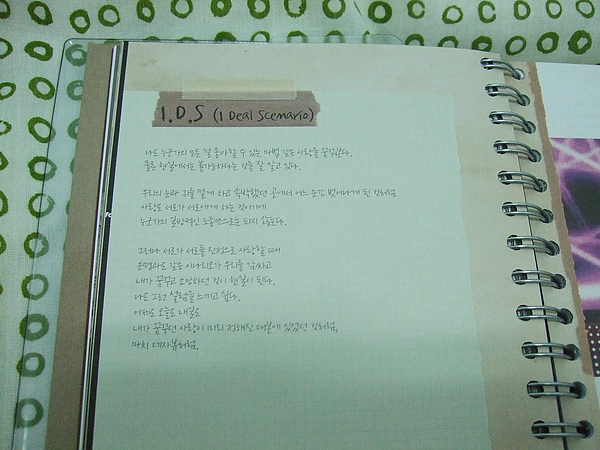 I.D.S (I Deal Scenario)
나도 누군가의 모든 걸 좋아할 수 있는 마법 같은 사랑을 꿈꾸었다.
물론 현실에서는 불가능하다는 것을 잘 알고 있다.
우리의 눈과 귀를 멀게 하고 속박했던 곳에서 어느 순간 벗어나게 된 것처럼
사랑도 서로가 서로에게 하는 것이기에
누군가의 일방적인 조율만으로는 되지 않는다.
그러나 서로가 서로를 진정으로 사랑할 때
운명과도 같은 시나리오가 우리를 감싸고
내가 꿈꾸고 소망하던 것이 현실이 된다.
나도 그런 설렘을 느끼고 싶다.
어제도 오늘도 내일도
내가 꿈꾸던 사랑이 미리 정해진 대본에 있었던 것처럼,
마치 데자뷰처럼.